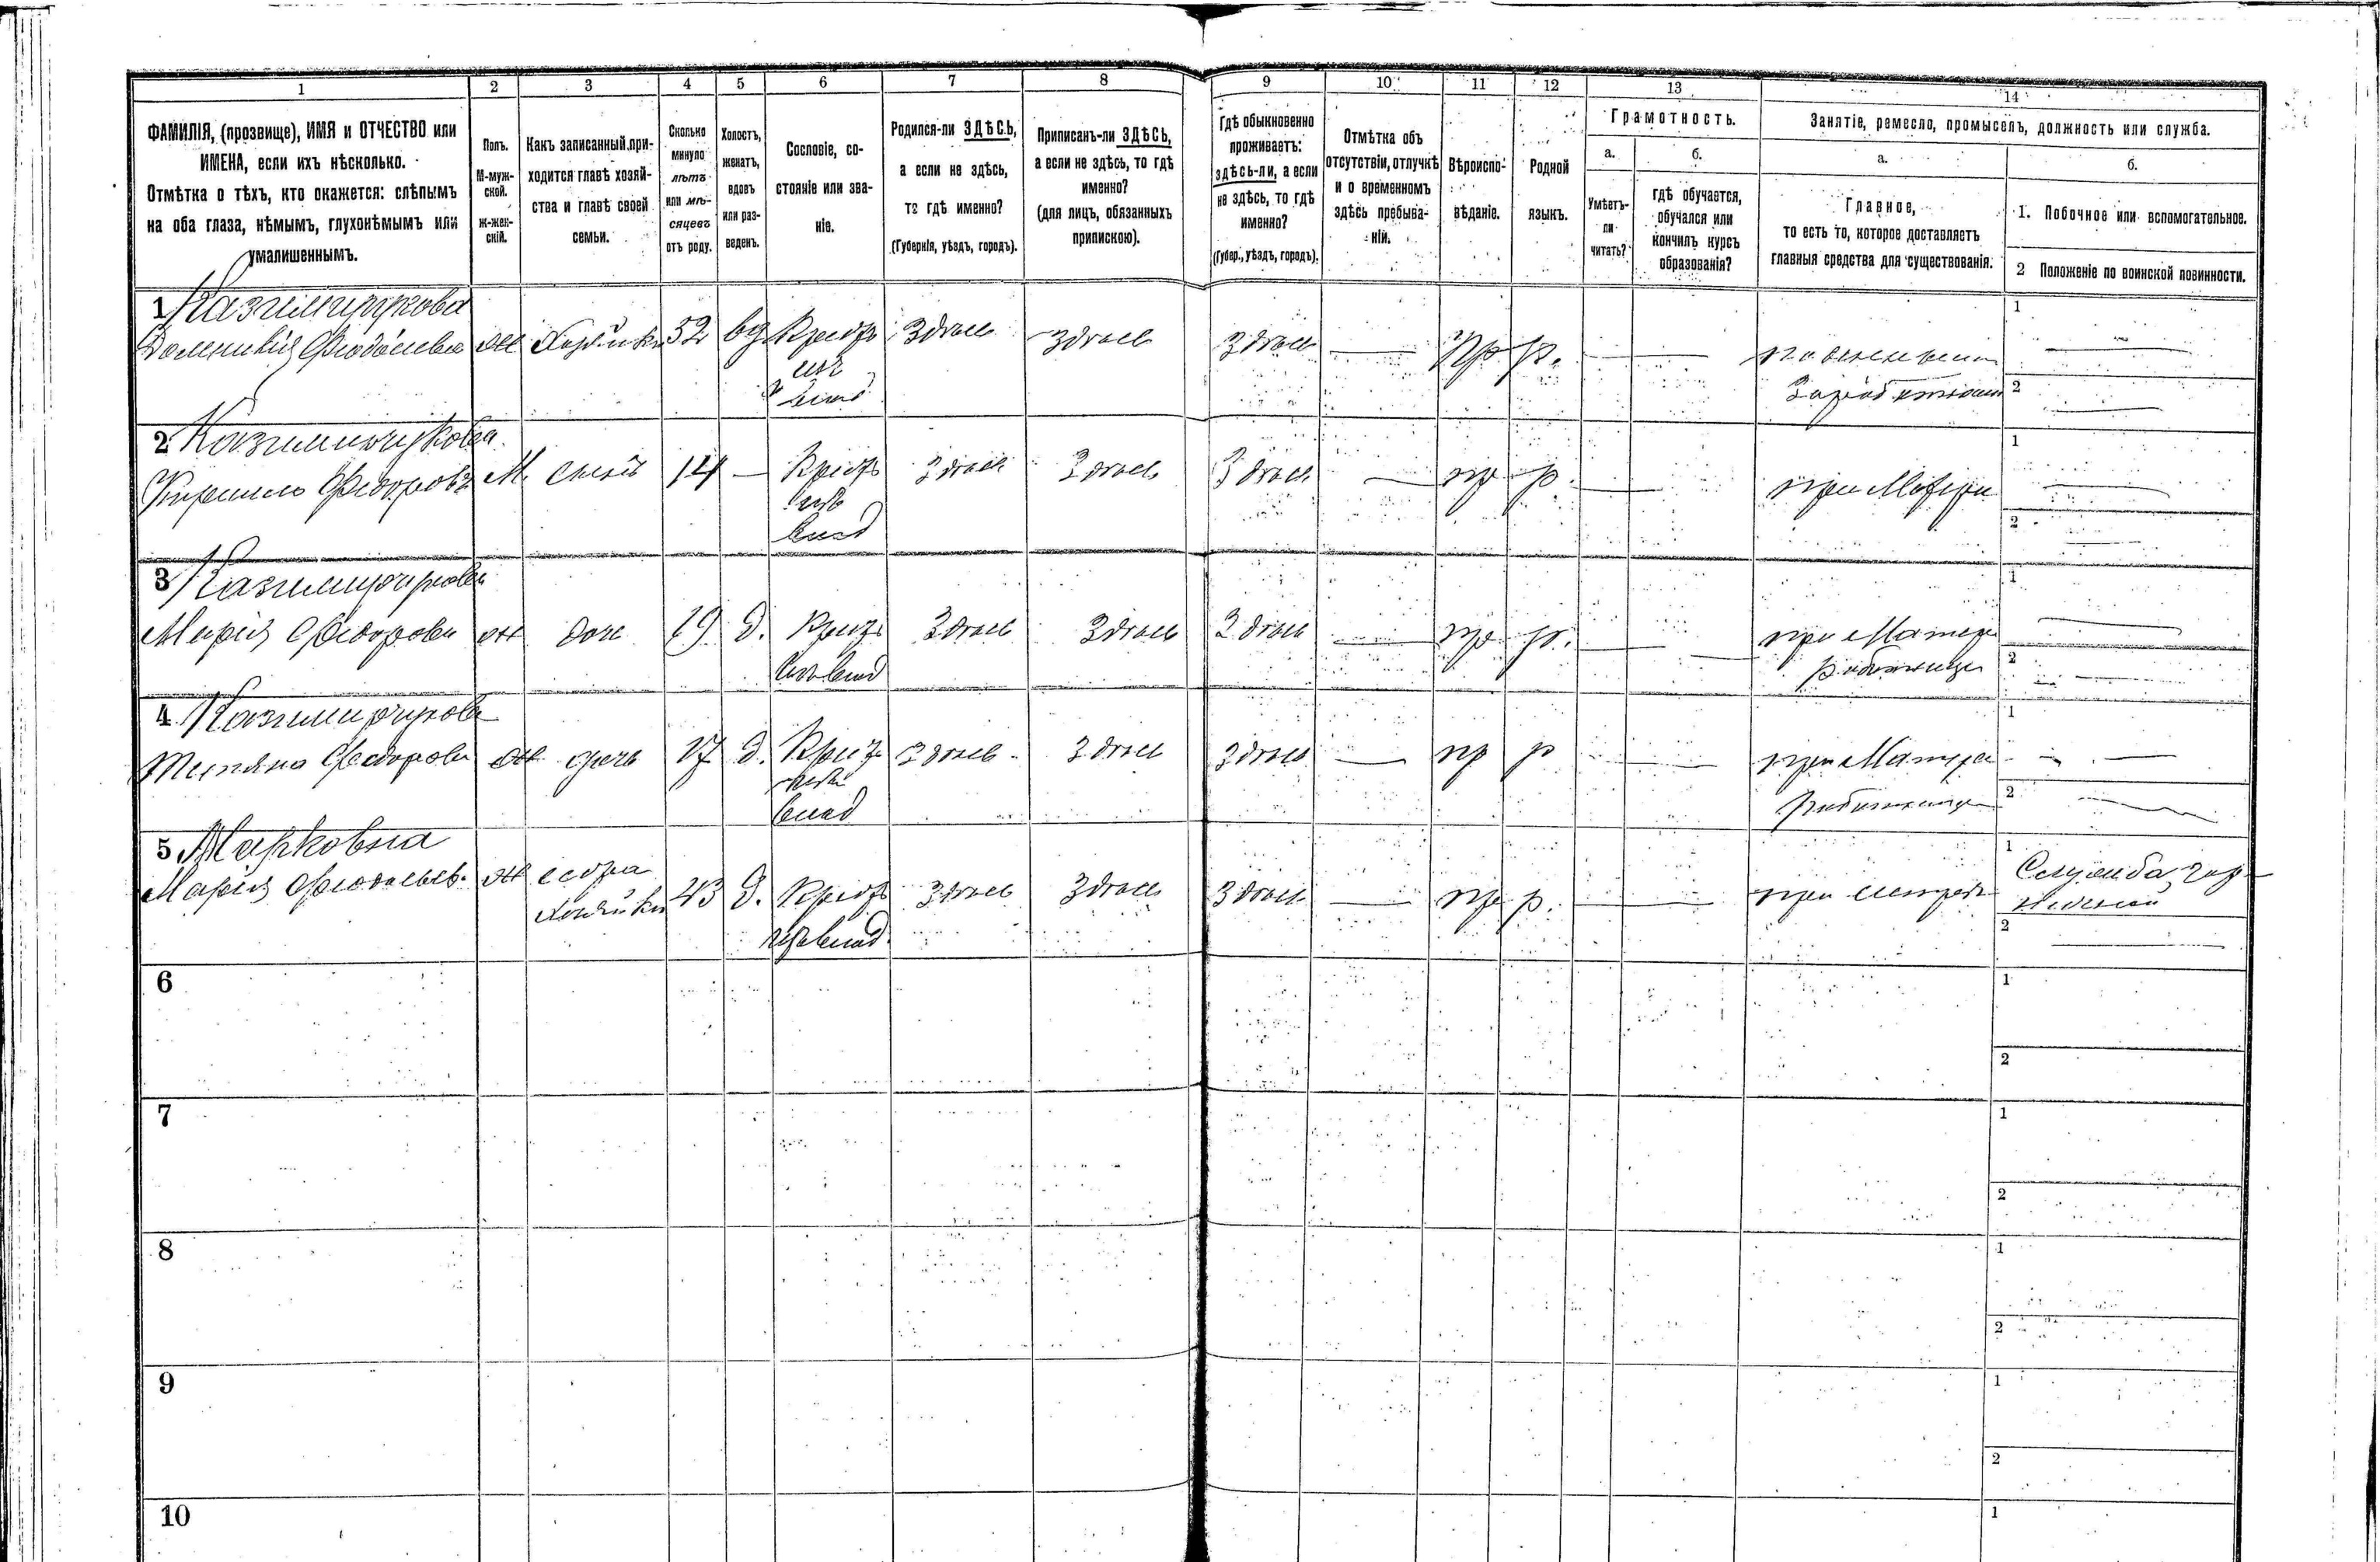 1 2 3 4 5 6 7 8 9 10 11 12 13 14
ФАМИЛІЯ, (прозвище), ИМЯ и ОТЧЕСТВО или
ИМЕНА, если ихъ нѣсколько.
Отмѣтка о тѣхъ, кто окажется: слѣпымъ
на оба глаза, нѣмымъ, глухонѣмымъ или
умалишеннымъ.
Полъ.
М-муж-
ской.
ж-жен-
скій.
Какъ записанный при-
ходится главѣ хозяй-
ства и главѣ своей
семьи.
Сколько
минуло
лѣтъ
или мѣ-
сяцевъ
отъ роду.
Холостъ,
женатъ,
вдовъ
или раз-
веденъ.
Сословіе, со-
стояніе или зва-
ніе.
Родился-ли ЗДѢСЬ,
а если не здѣсь,
то гдѣ именно?
(Губернія, уѣздъ, городъ).
Приписанъ-ли ЗДѢСЬ,
а если не здѣсь, то гдѣ
именно?
(для лицъ, обязанныхъ
припискою).
Гдѣ обыкновенно
проживаетъ:
здѣсь-ли, а если
не здѣсь, то гдѣ
именно?
(Губер., уѣздъ, городъ).
Отмѣтка объ
отсутствіи, отлучкѣ
и о временномъ
здѣсь пребыва-
ніи.
Вѣроиспо-
вѣданіе.
Родной
языкъ.
Грамотность.
а.
Умѣетъ-
ли
читать?
б.
гдѣ обучается,
обучался или
кончилъ курсъ
образованія?
Занятіе, ремесло, промыселъ, должность или служба.
а.
Главное,
то есть то, которое доставляетъ
главныя средства для существованія.
б.
1. Побочное или вспомогательное.
2 Положеніе по воинской повинности.
1
ж Хозяйка 52 вд Крест здѣсь здѣсь здѣсь — пр р. — —
из
влад
1 —
2 —
2
Кирило Федоровъ М. сынъ 14 — Крест здѣсь здѣсь здѣсь — пр р. — при Матери
изъ
влад
1 —
2 —
3
Марія Федорова ж доч 19 д. Крест здѣсь здѣсь здѣсь — пр р. — — при Матери
влад работница
1 —
2 —
4
Татьяна Федорова ж дочь 17 д. Крест здѣсь здѣсь здѣсь — пр р — — при Матери
влад работница
1 —
2 —
5 Марковна
Марія ж сестра 43 д. Крест здѣсь здѣсь здѣсь — пр р. — при сестрѣ
Хозяйки
влад
1 Служба
2 —
6 1
2
7 1
2
8 1
2
9 1
2
10 1